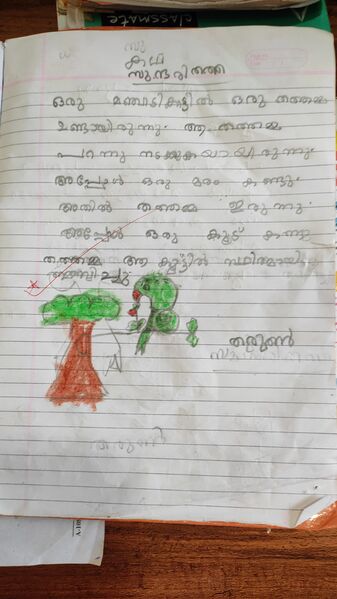 classmate
സു
കഥ
സുന്ദരിതത്ത
ഒരു മഞ്ചാടികാട്ടിൽ ഒരു തത്തമ്മ
ഉണ്ടായിരുന്നു. ആ തത്തമ്മ
പറന്നു നടക്കുകയായിരുന്നു.
അപ്പോൾ ഒരു മരം കണ്ടു.
അതിൽ തത്തമ്മ ഇരുന്നു.
അപ്പോൾ ഒരു കൂട് കണ്ടു
തത്തമ്മ ആ കൂട്ടിൽ സ്ഥിരമായി
താമസിച്ചു
തരുൺ
തരുൺ